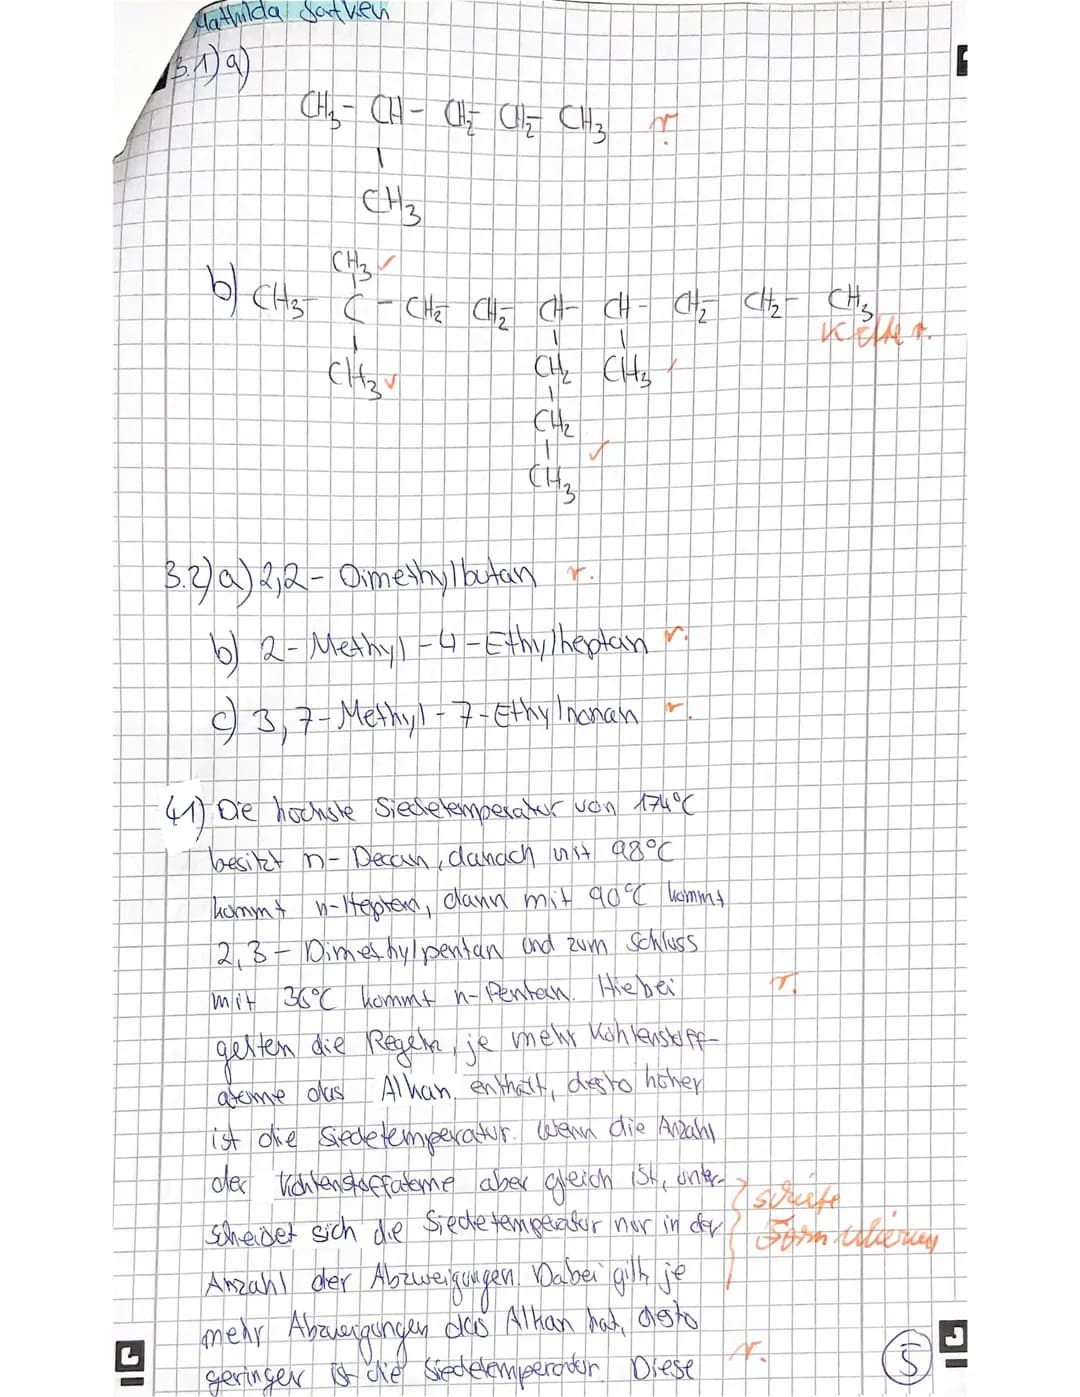 Mathilda
3.1) a)
CH3 - CH - CH2 - CH2 - CH3 r.
CH3
CH3 ✓
b) CH3 - C - CH2 - CH2 - CH - CH - CH2 - CH2 - CH3
Kette r.
CH3 ✓ CH2 CH3 ✓
CH2
✓
CH3
3.2) a) 2,2 - Dimethylbutan r.
b) 2 - Methyl - 4 - Ethylheptan r.
c) 3, 7 - Methyl - 7 - Ethylnonan r.
41) Die höchste Siedetemperatur von 174°C
besitzt n - Decan, danach mit 98°C
kommt n - Heptan, dann mit 90°C kommt
2,3 - Dimethylpentan und zum Schluss
mit 36°C kommt n - Pentan. Hiebei r.
gelten die Regeln, je mehr Kohlenstoff-
atome das Alkan enthält, desto höher
ist die Siedetemperatur. Wenn die Anzahl
der Kohlenstoffatome aber gleich ist, unter-
scheidet sich die Siedetemperatur nur in der
Anzahl der Abzweigungen. Dabei gilt, je
mehr Abzweigungen das Alkan hat, desto
geringer ist die Siedetemperatur. Diese r.
Formulierung
5